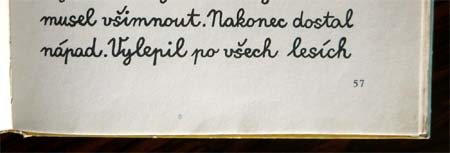 musel všimnout. Nakonec dostal
nápad. Vylepil po všech lesích
57